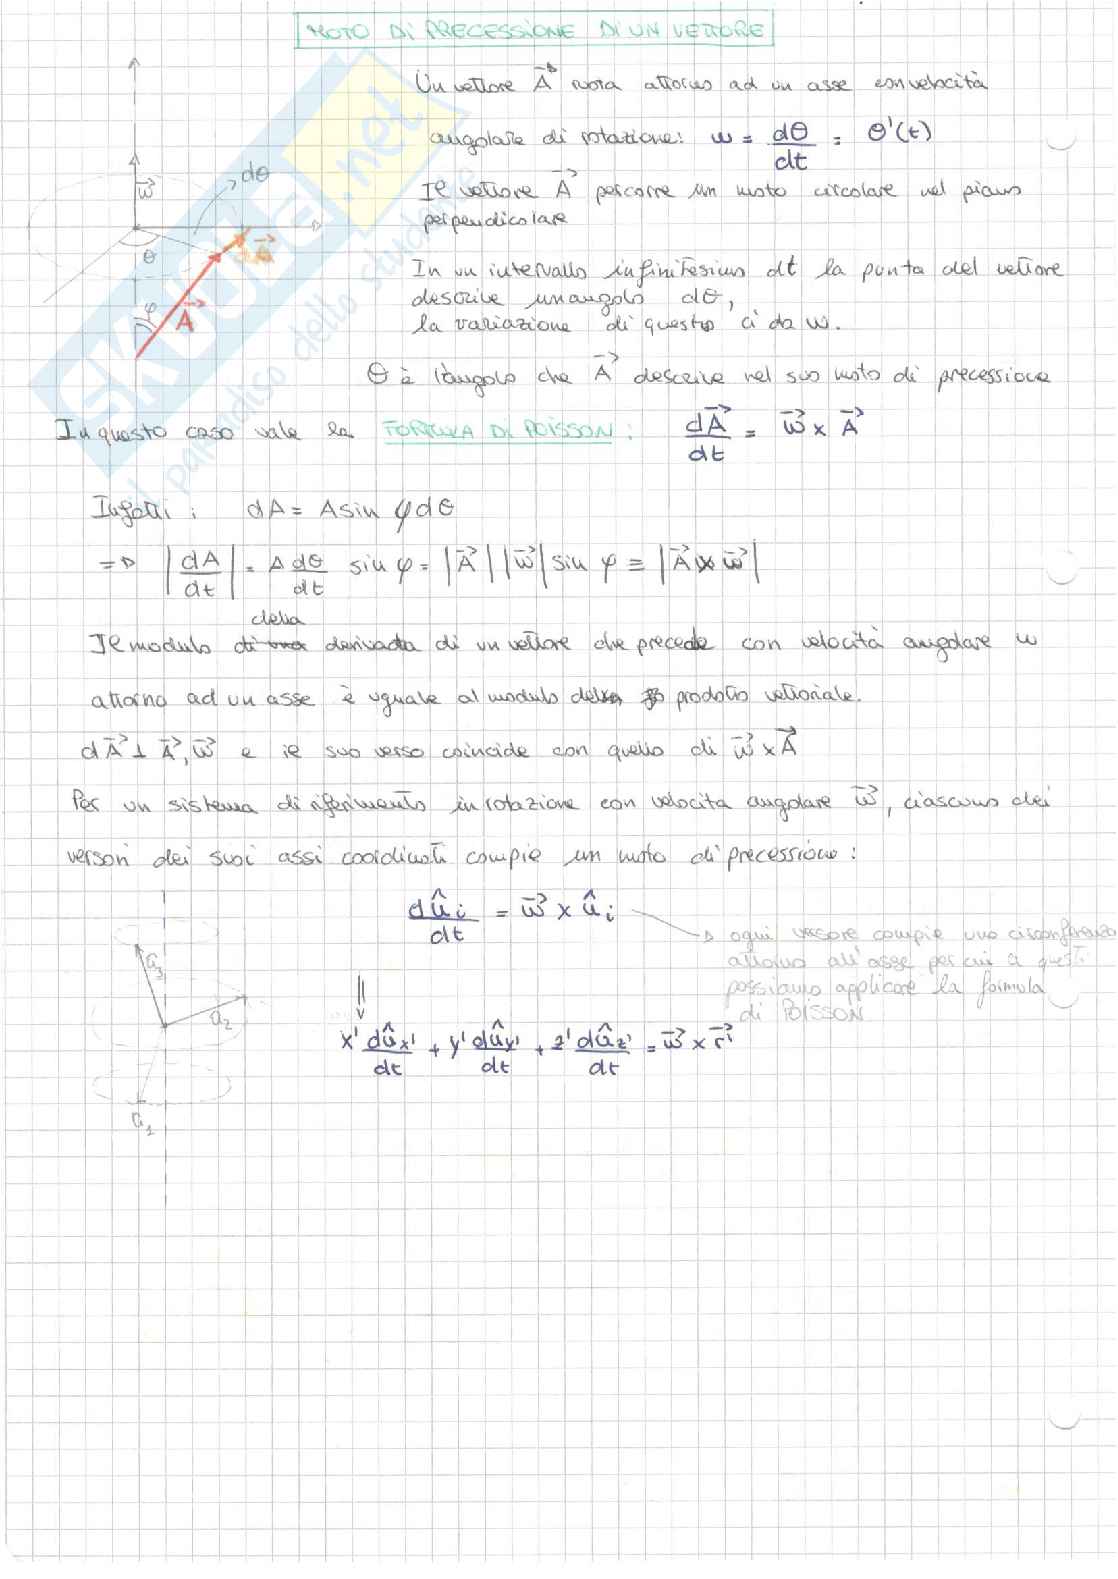 MOTO DI PRECESSIONE DI UN VETTORE
Un vettore A⃗ ruota attorno ad un asse con velocità
angolare di rotazione: ω = dθ/dt = θ'(t)
Il vettore A⃗ percorre un moto circolare nel piano
perpendicolare
In un intervallo infinitesimo dt la punta del vettore
descrive un angolo dθ,
la variazione di questo ci da ω.
θ è l'angolo che A⃗ descrive nel suo moto di precessione
In questo caso vale la FORMULA DI POISSON: dA⃗/dt = ω⃗ × A⃗
Infatti: dA = A sin φ dθ
=> |dA/dt| = A dθ/dt sin φ = |A⃗| |ω⃗| sin φ ≡ |A⃗ × ω⃗|
Il modulo della derivata di un vettore che precede con velocità angolare ω
attorno ad un asse è uguale al modulo del prodotto vettoriale.
dA⃗ ⊥ A⃗, ω⃗ e il suo verso coincide con quello di ω⃗ × A⃗
Per un sistema di riferimento in rotazione con velocita angolare ω⃗, ciascuno dei
versori dei suoi assi coordinati compie un moto di precessione:
dû_i/dt = ω⃗ × û_i
ogni versore compie una circonferenza
attorno all'asse per cui a questi
possiamo applicare la formula
di POISSON
x' dû_x'/dt + y' dû_y'/dt + z' dû_z'/dt = ω⃗ × r⃗'
ω⃗
dθ
θ
φ
A⃗
u_3
u_2
u_1
SKUOLA.net
il paradiso dello studente